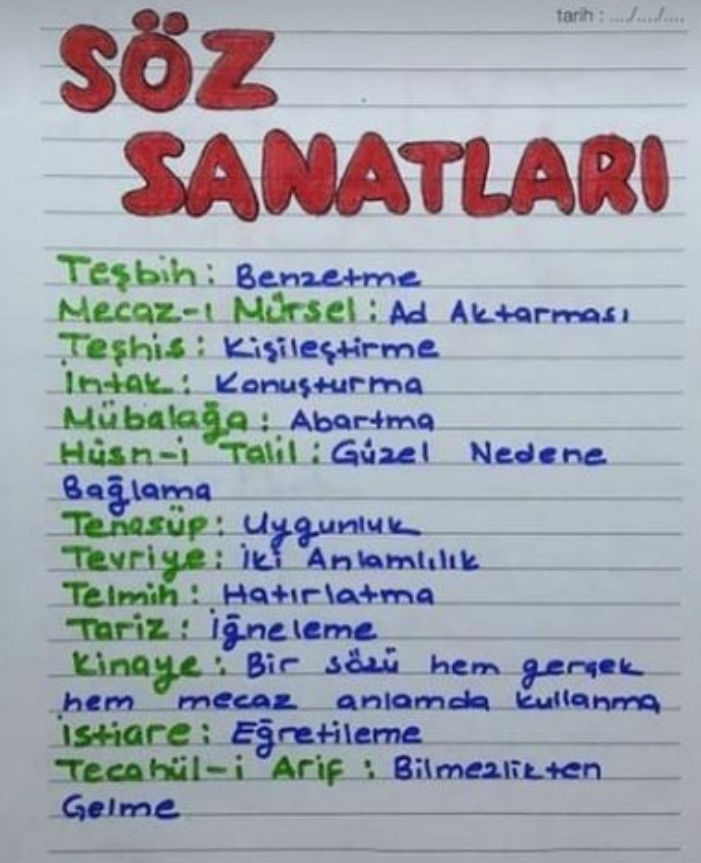 tarih : .../.../...
SÖZ
SANATLARI
Teşbih: Benzetme
Mecaz-ı Mürsel: Ad Aktarması
Teşhis: Kişileştirme
İntak: Konuşturma
Mübalağa: Abartma
Hüsn-i Talil: Güzel Nedene
Bağlama
Tenasüp: Uygunluk
Tevriye: İki Anlamlılık
Telmih: Hatırlatma
Tariz: İğneleme
Kinaye: Bir sözü hem gerçek
hem mecaz anlamda kullanma
İstiare: Eğretileme
Tecahül-i Arif: Bilmezlikten
Gelme